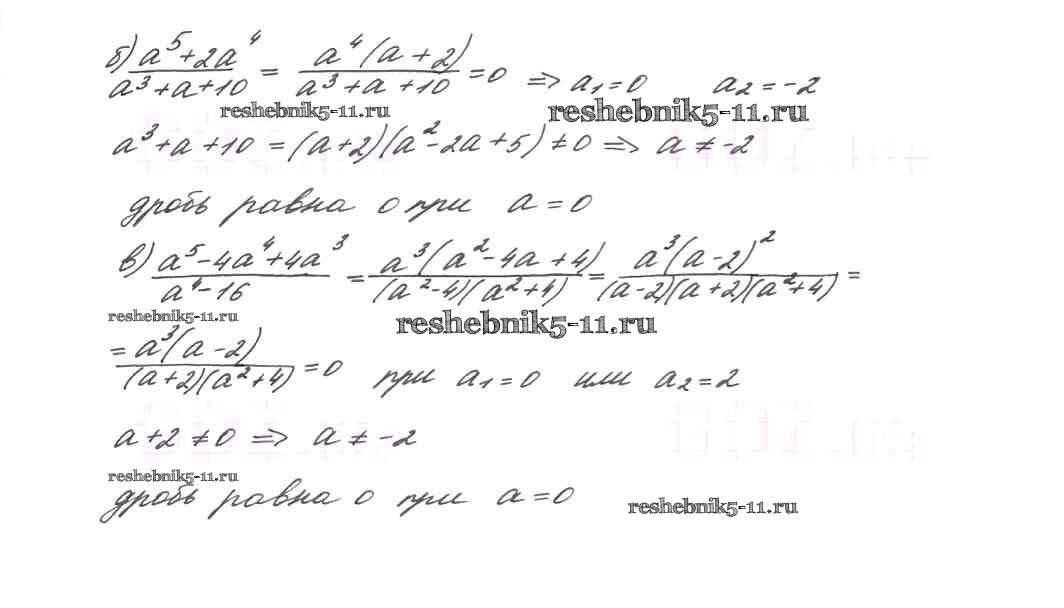 б) a⁵+2a⁴ / a³+a+10 = a⁴(a+2) / a³+a+10 = 0 => a₁=0 a₂=-2
reshebnik5-11.ru reshebnik5-11.ru
a³+a+10 = (a+2)(a²-2a+5) ≠ 0 => a ≠ -2
дробь равна 0 при a=0
в) a⁵-4a⁴+4a³ / a⁴-16 = a³(a²-4a+4) / (a²-4)(a²+4) = a³(a-2)² / (a-2)(a+2)(a²+4) =
reshebnik5-11.ru reshebnik5-11.ru
= a³(a-2) / (a+2)(a²+4) = 0 при a₁=0 или a₂=2
a+2 ≠ 0 => a ≠ -2
reshebnik5-11.ru
дробь равна 0 при a=0
reshebnik5-11.ru